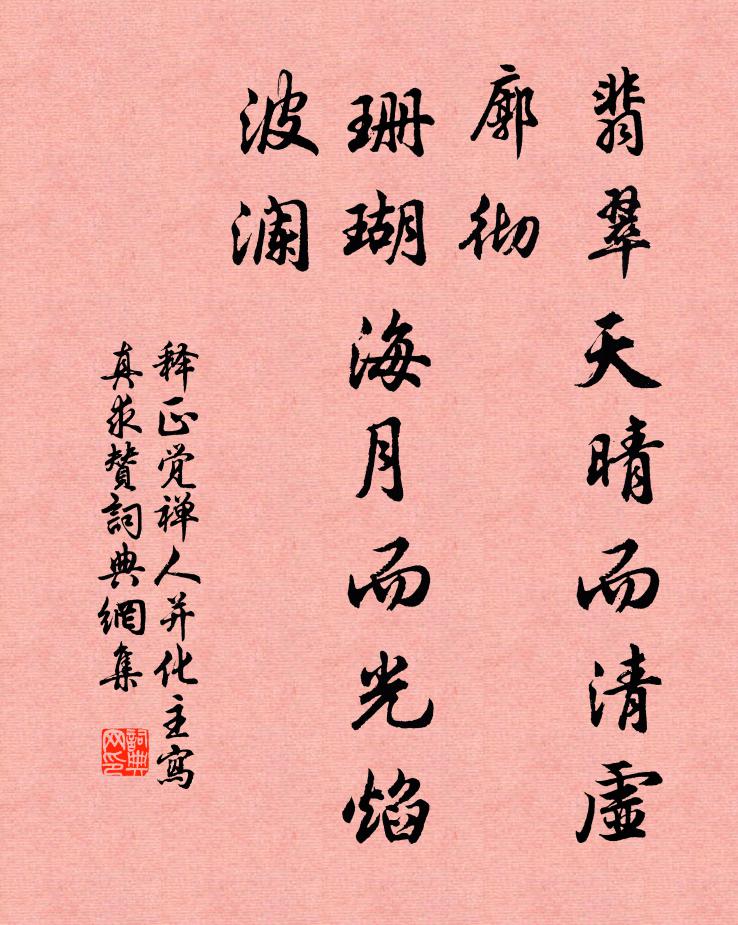 翡翠天晴而清虚
廓彻
珊瑚海月而光焰
波澜
释正觉禅人并化主寫
真求赞詞典網集
詞典
网印